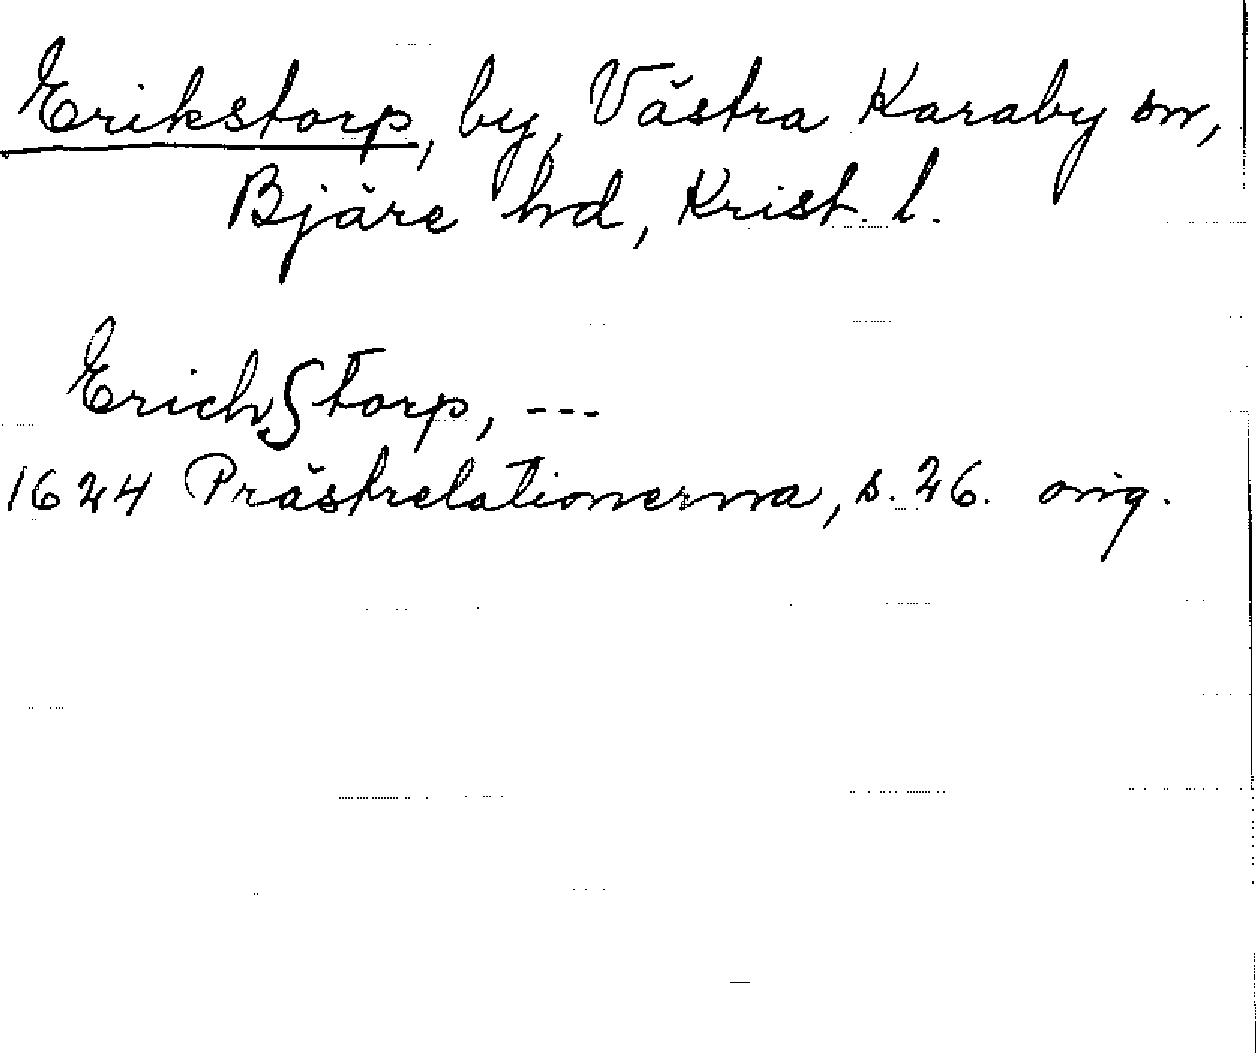 Erikstorp, by, Västra Karaby sn,
Bjäre hd, Krist. l.
ErichStorp, ---
1624 Prästrelationerna, s. 26. orig.